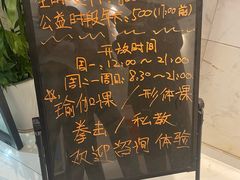 公益时段年卡:500(11:00前)
开放时间
周一:12:00~21:00
周二~周日:8:30~21:00
瑜伽课/形体课
拳击/私教
欢迎咨询体验